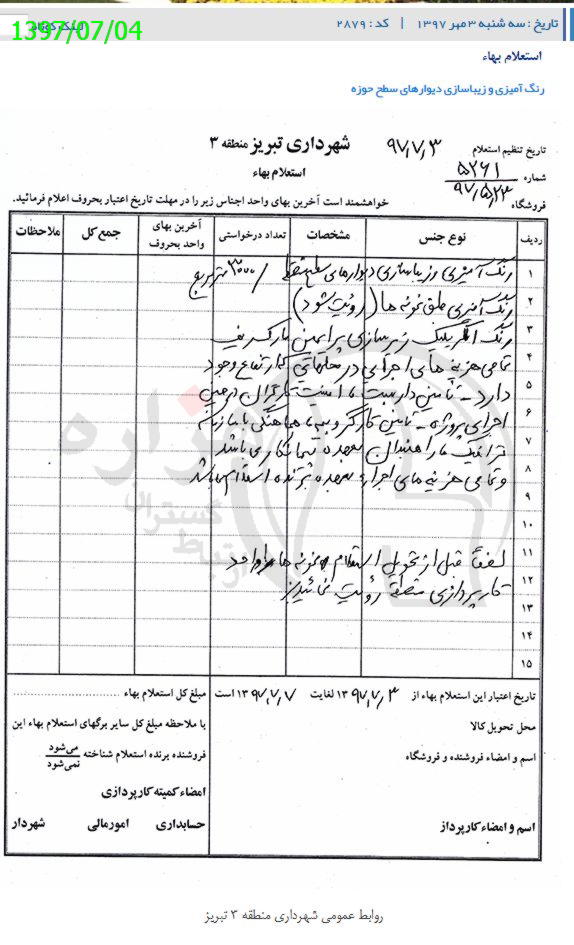 تاریخ : سه شنبه ۳ مهر ۱۳۹۷ | کد : ۲۸۷۹
1397/07/04
استعلام بهاء
رنگ آمیزی و زیباسازی دیوارهای سطح حوزه
تاریخ تنظیم استعلام ۹۷/۷/۳
شهرداری تبریز منطقه ۳
شماره ۵۲۶۱
۹۷/۵/۲۳
استعلام بهاء
فروشگاه
خواهشمند است آخرین بهای واحد اجناس زیر را در مهلت تاریخ اعتبار بحروف اعلام فرمائید.
ردیف نوع جنس مشخصات تعداد درخواستی آخرین بهای واحد بحروف جمع کل ملاحظات
۱ رنگ آمیزی و زیباسازی دیوارهای سطح منطقه / ۳۰۰۰ متر مربع
۲ رنگ آمیزی طبق نمونه ها (رؤیت شود)
۳ رنگ اکریلیک زیرسازی پرایمر
۴ تمامی هزینه های اجرایی در محلهائی که ارتفاع وجود
۵ دارد - تأمین داربست ، امنیت کارگران در حین
۶ اجرای پروژه - تأمین کارگر و بیمه ، هماهنگی با سازمان
۷ ترافیک ، راهنمایی بعهده پیمانکار می باشد
۸ و تمامی هزینه های اجرا بعهده برنده استعلام میباشد
۹
۱۰
۱۱ لطفاً قبل از تحویل استعلام نمونه ها را از واحد
۱۲ کارپردازی منطقه رؤیت نمائید
۱۳
۱۴
۱۵
تاریخ اعتبار این استعلام بهاء از ۱۳۹۷/۷/۳ لغایت ۱۳۹۷/۷/۷ است
مبلغ کل استعلام بهاء
محل تحویل کالا
با ملاحظه مبلغ کل سایر برگهای استعلام بهاء این
اسم و امضاء فروشنده و فروشگاه
فروشنده برنده استعلام شناخته می‌شود
نمی‌شود
امضاء کمیته کارپردازی
اسم و امضاء کارپرداز
حسابداری امورمالی شهردار
هزاره
گستران
ارتباط
روابط عمومی شهرداری منطقه ۳ تبریز